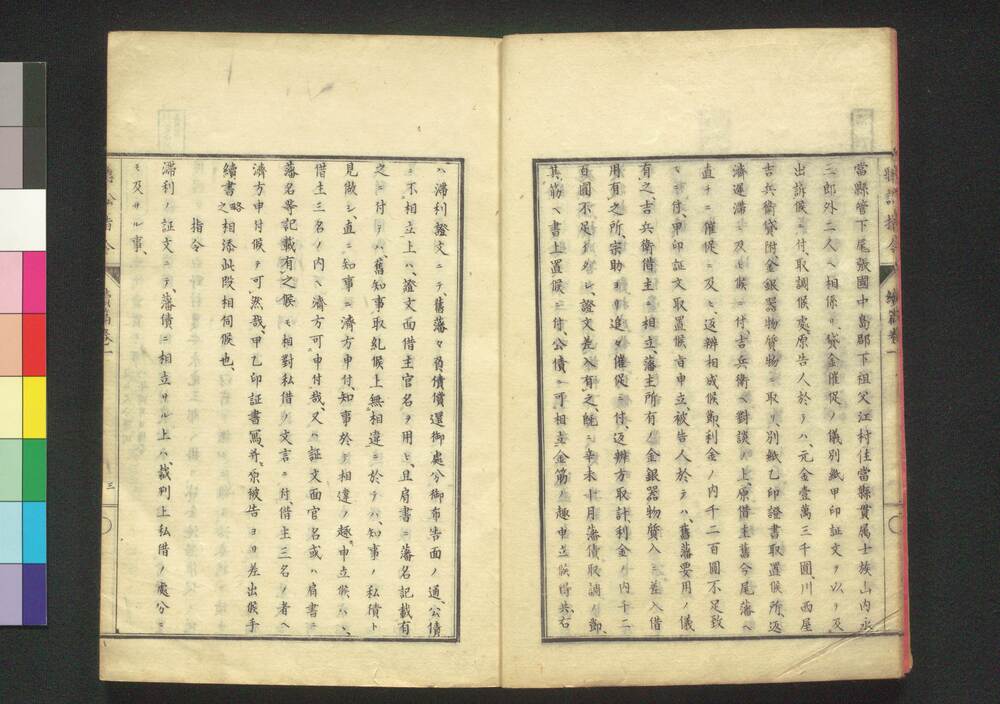 當縣管下尾張國中島郡下祖父江村住當縣貫属士族山内永
三郎外二人ヘ相係ル貸金催促ノ儀別紙甲印証文ヲ以テ及
出訴候ニ付取調候處原告人於テハ元金壹萬三千圓川西屋
吉兵衛貸附金銀器物質物ニ取リ別紙乙印證書取置候所返
濟遲滞ニ及ヒ候ニ付吉兵衛ヘ對談ノ上原借主舊今尾藩ヘ
直チニ催促ニ及ヒ返辨相成候節利金ノ内千二百圓不足致
シ付甲印証文取置候旨申立被告人於テハ舊藩要用ノ儀
有之吉兵衛借主ニ相立藩主所有ノ金銀器物質入ニ差入借
用有之所宗助ヨリ追々催促ニ付返辨方取計利金ノ内千二
百圓不足證文差入有之既ニ辛未十月藩債取調ノ節
其筋ヘ書上置候ニ付公債ニ可相立金筋ノ趣申立候得共右
ハ滞利證文ニテ舊藩々負債償還御處分御布告面ノ通公債
ニ不相立上ハ證文面借主官名ヲ用ヒ且肩書ニ藩名記載有
之ニ付テハ舊知事取糺候上無相違ニ於テハ知事ノ私債ト
見做シ直ニ知事ニ濟方申付知事於テ相違ノ趣申立候ハヽ
借主三名ノ内ヘ濟方可申付哉又ハ証文面官名或ハ肩書ニ
藩名等記載有之候ヘトモ相對私借ノ文言ニ付借主三名ノ者ヘ
濟方申付候ヲ可然哉甲乙印証書寫并原被告ヨリ差出候手
續書略之相添此段相伺候也
指令
滞利ノ証文ニテ藩債ニ相立サル上ハ裁判上私借ノ處分ニ
モ及サル事
續高卷一
三